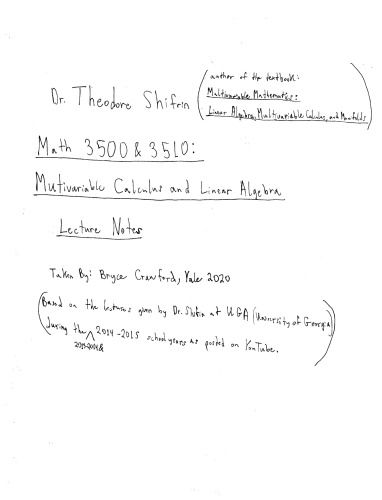 Dr. Theodore Shifrin
(author of the textbook:
Multivariable Mathematics:
Linear Algebra, Multivariable Calculus, and Manifolds)
Math 3500 & 3510:
Mutivariable Calculus and Linear Algebra
Lecture Notes
Taken By: Bryce Crawford, Yale 2020
(Based on the lectures given by Dr. Shifrin at UGA (University of Georgia)
during the 2014-2015 school years as posted on YouTube.)
2013-2014 &